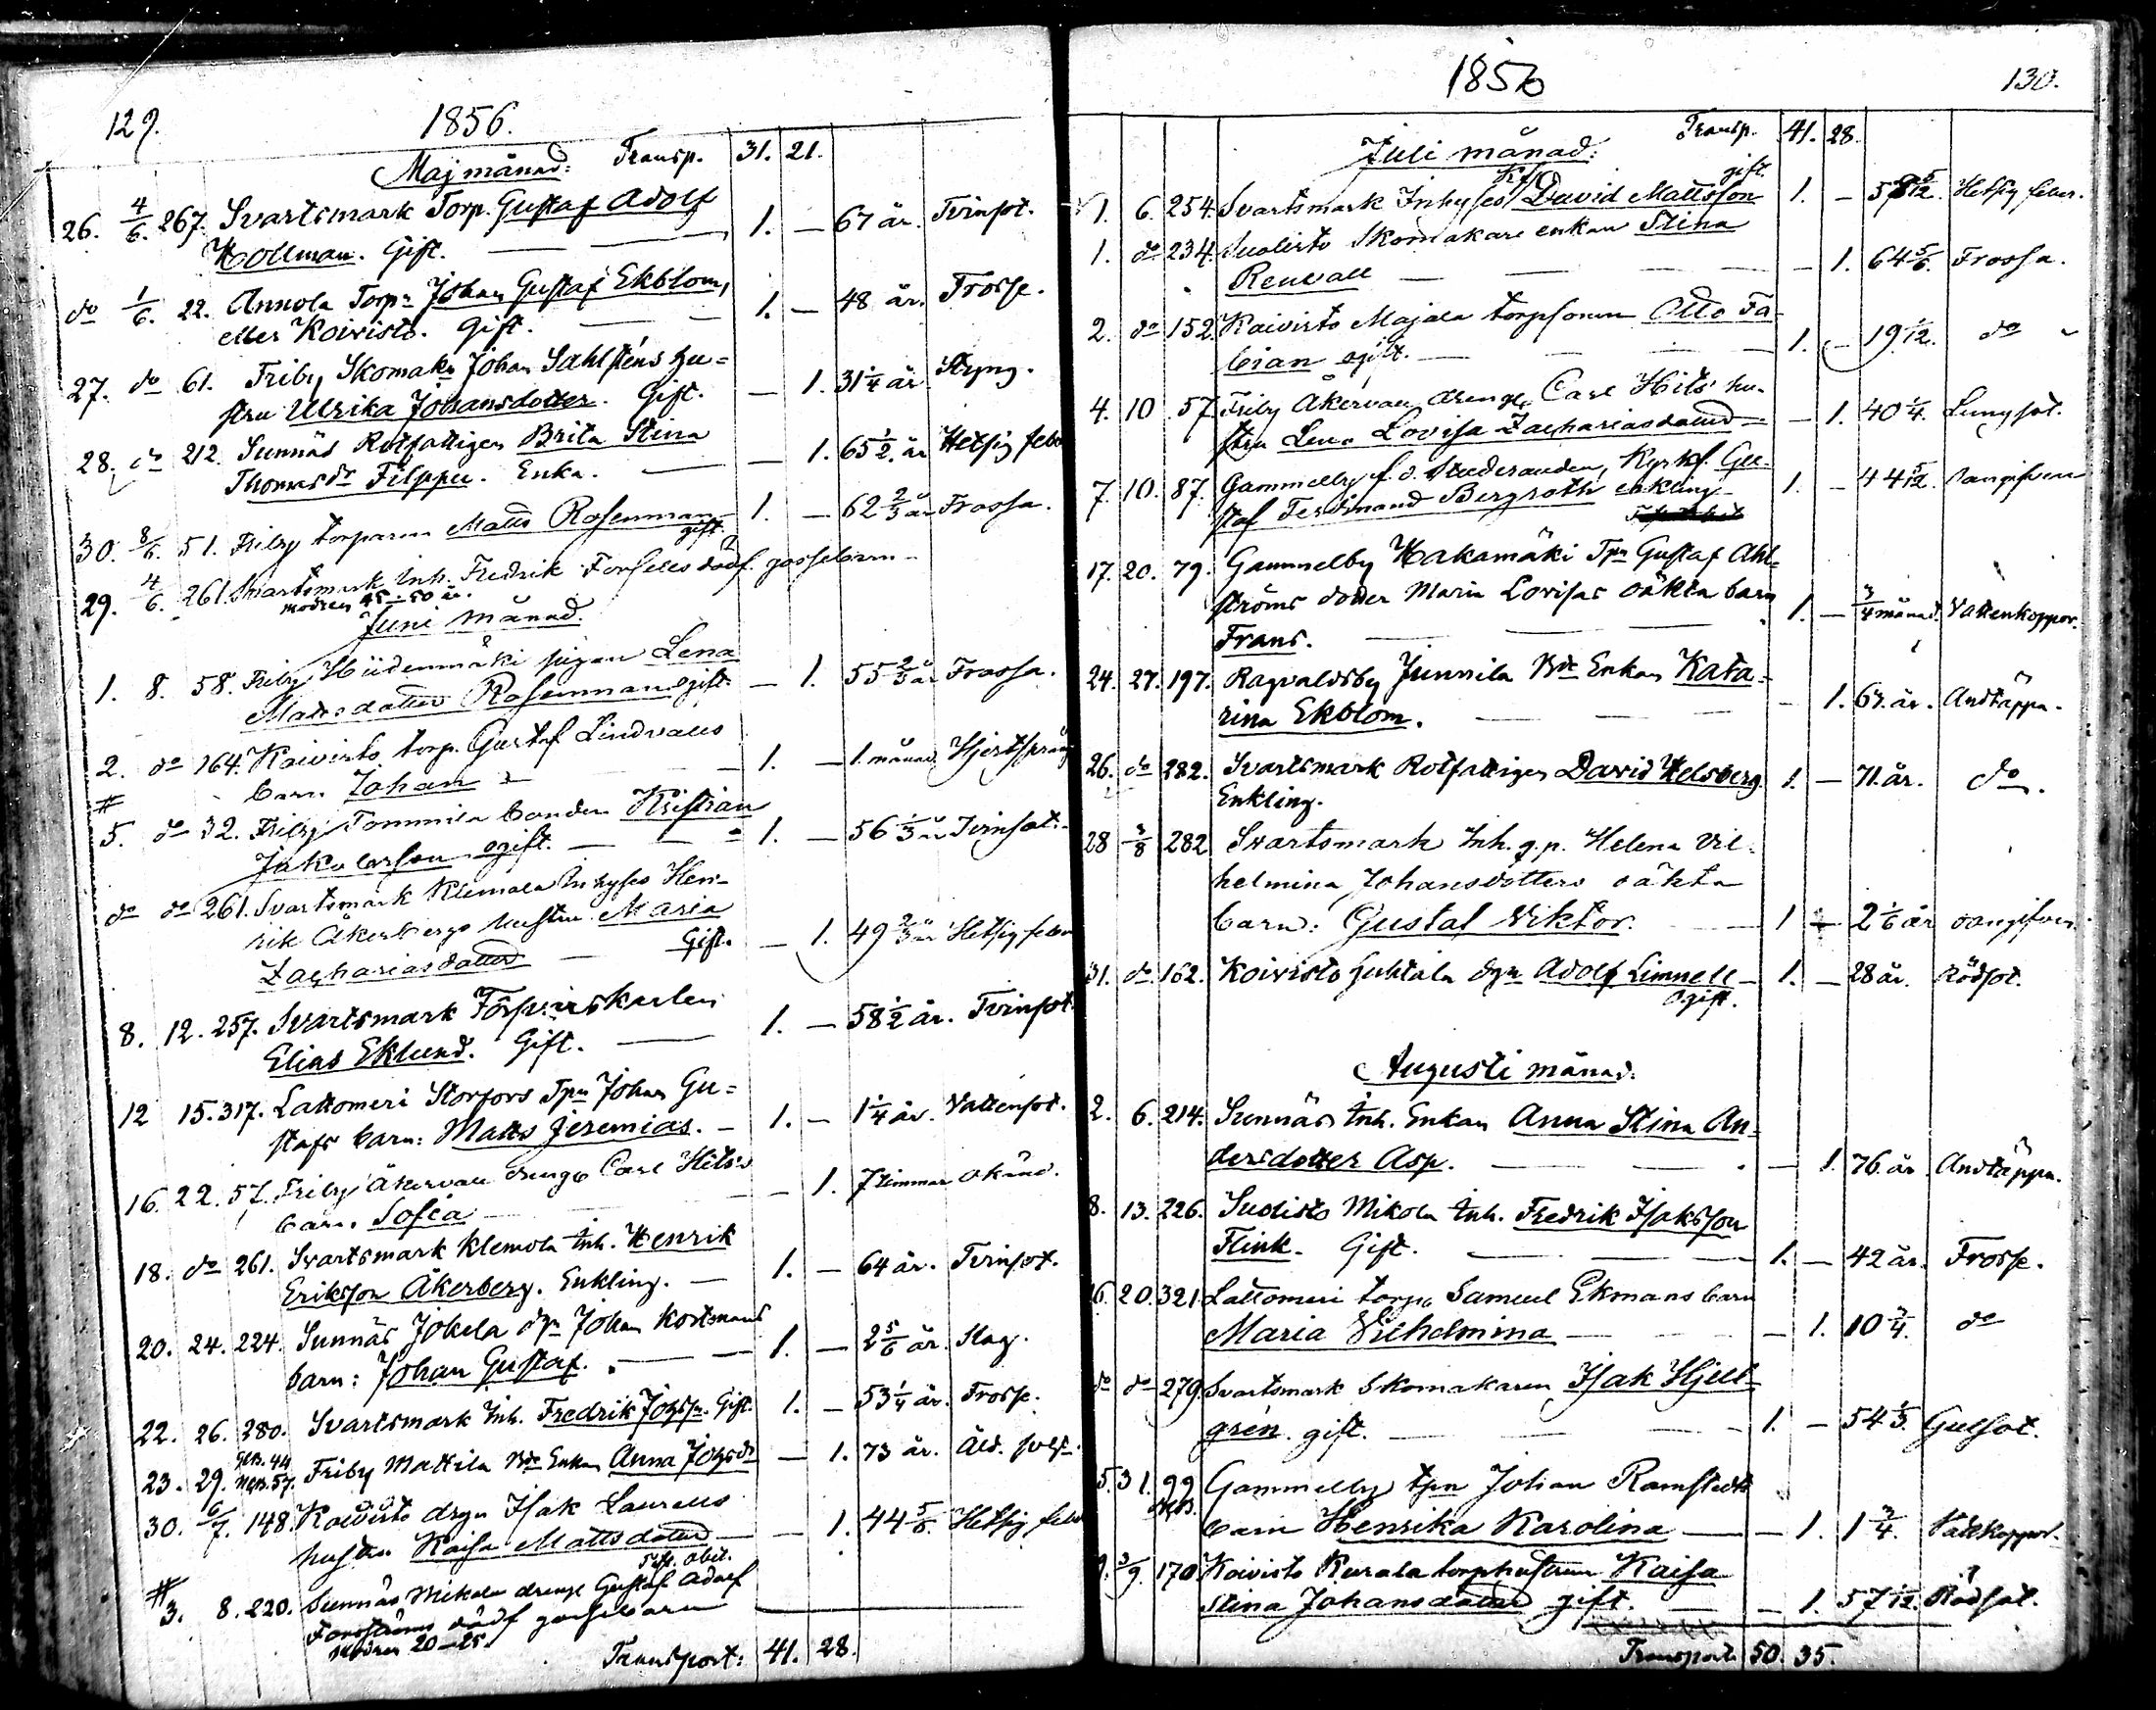 129.
1856.
Maj månad: Transp. 31. 21.
26. 4/6. 267. Svartsmark Torp. Gustaf Adolf
Hollman. Gift. 1. — 67 år. Tvinsot.
do 1/6. 22. Annola Torpn Johan Gustaf Ekblom,
eller Koivisto. Gift. 1. — 48 år. Frosse.
27. do 61. Friby Skomakn Johan Sahlsténs hu=
stru Ulrika Johansdotter. Gift. — 1. 31 1/4 år Styng.
28. do 212. Sunnäs Rotfattigen Brita Stina
Thomasdr Filppu. Enka. — 1. 65 1/2. år Hetsig feber
30. 8/6. 51. Friby torparen Matts Rosenman gift. 1. — 62 2/3 år Frossa.
29. 4/6. 261. Svartsmark Inh. Fredrik Forsells dödf. gossebarn
modren 45–50 år.
Juni månad.
1. 8. 58. Friby Hiidenmäki pigan Lena
Mattsdotter Rosenman ogift. — 1. 55 2/3 år Frossa.
2. do 164. Koivisto torp. Gustaf Lindvalls
barn Johan 1. — 1. månad Hjertsprång
5. do 32. Friby Tommila bonden Kristian
Jakobsson ogift. 1. — 56 1/3 år Tvinsot.
do do 261. Svartsmark Klemola Inhyses Hen-
rik Åkerbergs hustru Maria
Zachariasdotter Gift. — 1. 49 2/3 år Hetsig feber
8. 12. 257. Svartsmark Försvarskarlen
Elias Eklund. Gift. 1. — 58 1/2 år. Tvinsot.
12 15. 317. Lattomeri Storfors Tpn Johan Gu=
stafs barn: Matts Jeremias. 1. — 1 1/4 år. Vattensot.
16. 22. 57. Friby Åkervall drenge Carl Hits's
barn. Sofia — 1. 7 timmar okänd.
18. do 261. Svartsmark Klemola Inh. Henrik
Eriksson Åkerberg. Enkling. 1. — 64 år. Tvinsot.
20. 24. 224. Sunnäs Jokela dgn Johan Kortmans
barn: Johan Gustaf. 1. — 2 5/6 år. Slag.
22. 26. 280. Svartsmark Inh. Fredrik Johsson. Gift. 1. — 53 1/4 år. Frosse.
23. 29. 57. Friby Mattila Bde Enkan Anna Johsdr — 1. 73 år. Åld.
30. 6/7. 148. Koivisto drgn Isak Laurells
hustru Kaisa Mattsdotter — 1. 44 5/6. Hetsig feber
3. 8. 220. Sunnäs Mikola drenge Gustaf Adolf
Forsströms dödf gossebarn
Modren 20–25.
Transport: 41. 28.
1856
130.
Juli månad: Transp. 41. 28.
1. 6. 254. Svartsmark Inhyses David Mattsson gift. 1. — 58 5/12. Hetsig feber.
1. do 234. Suolisto Skomakare enkan Stina
Renvall — 1. 64 5/6. Frossa.
2. do 152. Koivisto Majala torpsonen Otto Fa-
bian ogift. 1. — 19 1/12. do
4. 10 57. Friby Åkervall drenge Carl Hits' hu-
stru Lena Lovisa Zachariasdotter — 1. 40 1/4. Lungsot.
7. 10. 87. Gammelby f.d. Studeranden, Kyrkf. Gu-
staf Ferdinand Bergroth enkling 1. — 44 5/12. oangifven
17. 20. 79. Gammelby Hakamäki Tpn Gustaf Ahl-
ströms dotter Maria Lovisas oäkta barn
Frans. 1. — 3/4 månad. Vattenkoppor.
24. 27. 197. Ragvaldsby Junnila Bde Enkan Kata=
rina Ekblom. — 1. 67. år. Andtäppa.
26. do 282. Svartsmark Rotfattigen David Helsberg. 1. — 71. år. do.
Enkling.
28 3/8 282 Svartsmark Inh. g.p. Helena Vil-
helmina Johansdotters oäkta
barn: Gustaf Viktor. 1 2 1/6 år oangifven.
31. do 162. Koivisto Juhtala dgn Adolf Limnell 1. — 28 år. Rödsot.
Ogift.
Augusti månad.
2. 6. 214. Sunnäs Inh. Enkan Anna Stina An-
dersdotter Asp. — 1. 76. år Andtäppa.
8. 13. 226. Suolisto Mikola Inh. Fredrik Isaksson
Flink. Gift. 1. — 42 år. Frosse.
16. 20. 321. Lattomeri torp. Samuel Ekmans barn
Maria Vilhelmina — 1. 10 3/4. do
do do 279. Svartsmark Skomakaren Isak Hjell-
grén gift. 1. — 54 1/3 Gulsot.
5. 31. 99 Gammelby tpn Johan Ramstedts
barn Henrika Karolina — 1. 1 3/4. Vattkoppor.
9. 3/9. 170 Koivisto Kurala torphustrun Kaisa
Stina Johansdotter gift. — 1. 57 1/12. Rödsot.
Transport 50. 35.